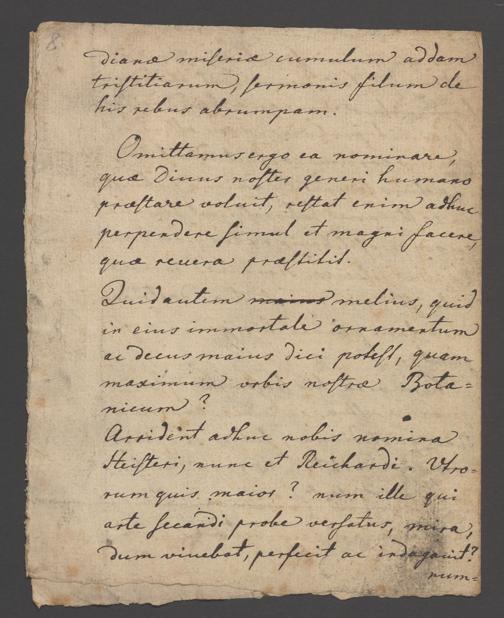 8.
dianæ miſeriæ cumulum addam
triſtitiarum, ſermonis filum de
his rebus abrumpam.
Omittamus ergo ea nominare,
quæ Divus noſter generi humano
præſtare voluit, reſtat enim adhuc
perpendere ſimul et magni facere,
quæ revera præſtitit.
Quid autem maius melius, quid
in eius immortale ornamentum
ac decus maius dici poteſt, quam
maximum urbis noſtræ Bota=
nicum?
Arrident adhuc nobis nomina
Heiſteri, nunc et Reichardi. Utro-
rum quis maior? num ille qui
arte ſecandi probe verſatus, mira,
dum vivebat, perfecit ac indagavit?
num=